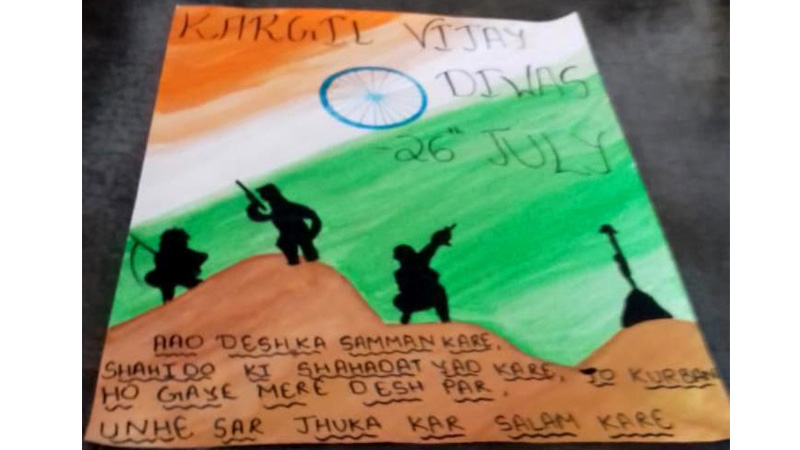 KARGIL VIJAY
DIWAS
-26th JULY
AAO DESH KA SAMMAN KARE,
SHAHIDO KI SHAHADAT YAD KARE, JO KURBAN
HO GAYE MERE DESH PAR.
UNHE SAR JHUKA KAR SALAM KARE